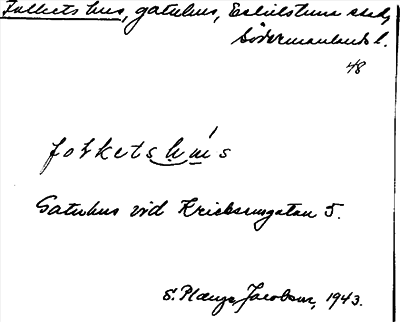 Folkets hus, gatuhus, Eskilstuna stad,
Södermanlands l.
48
folketshus
Gatuhus vid Kriebsensgatan 5.
S. Plænge Jacobson, 1943.